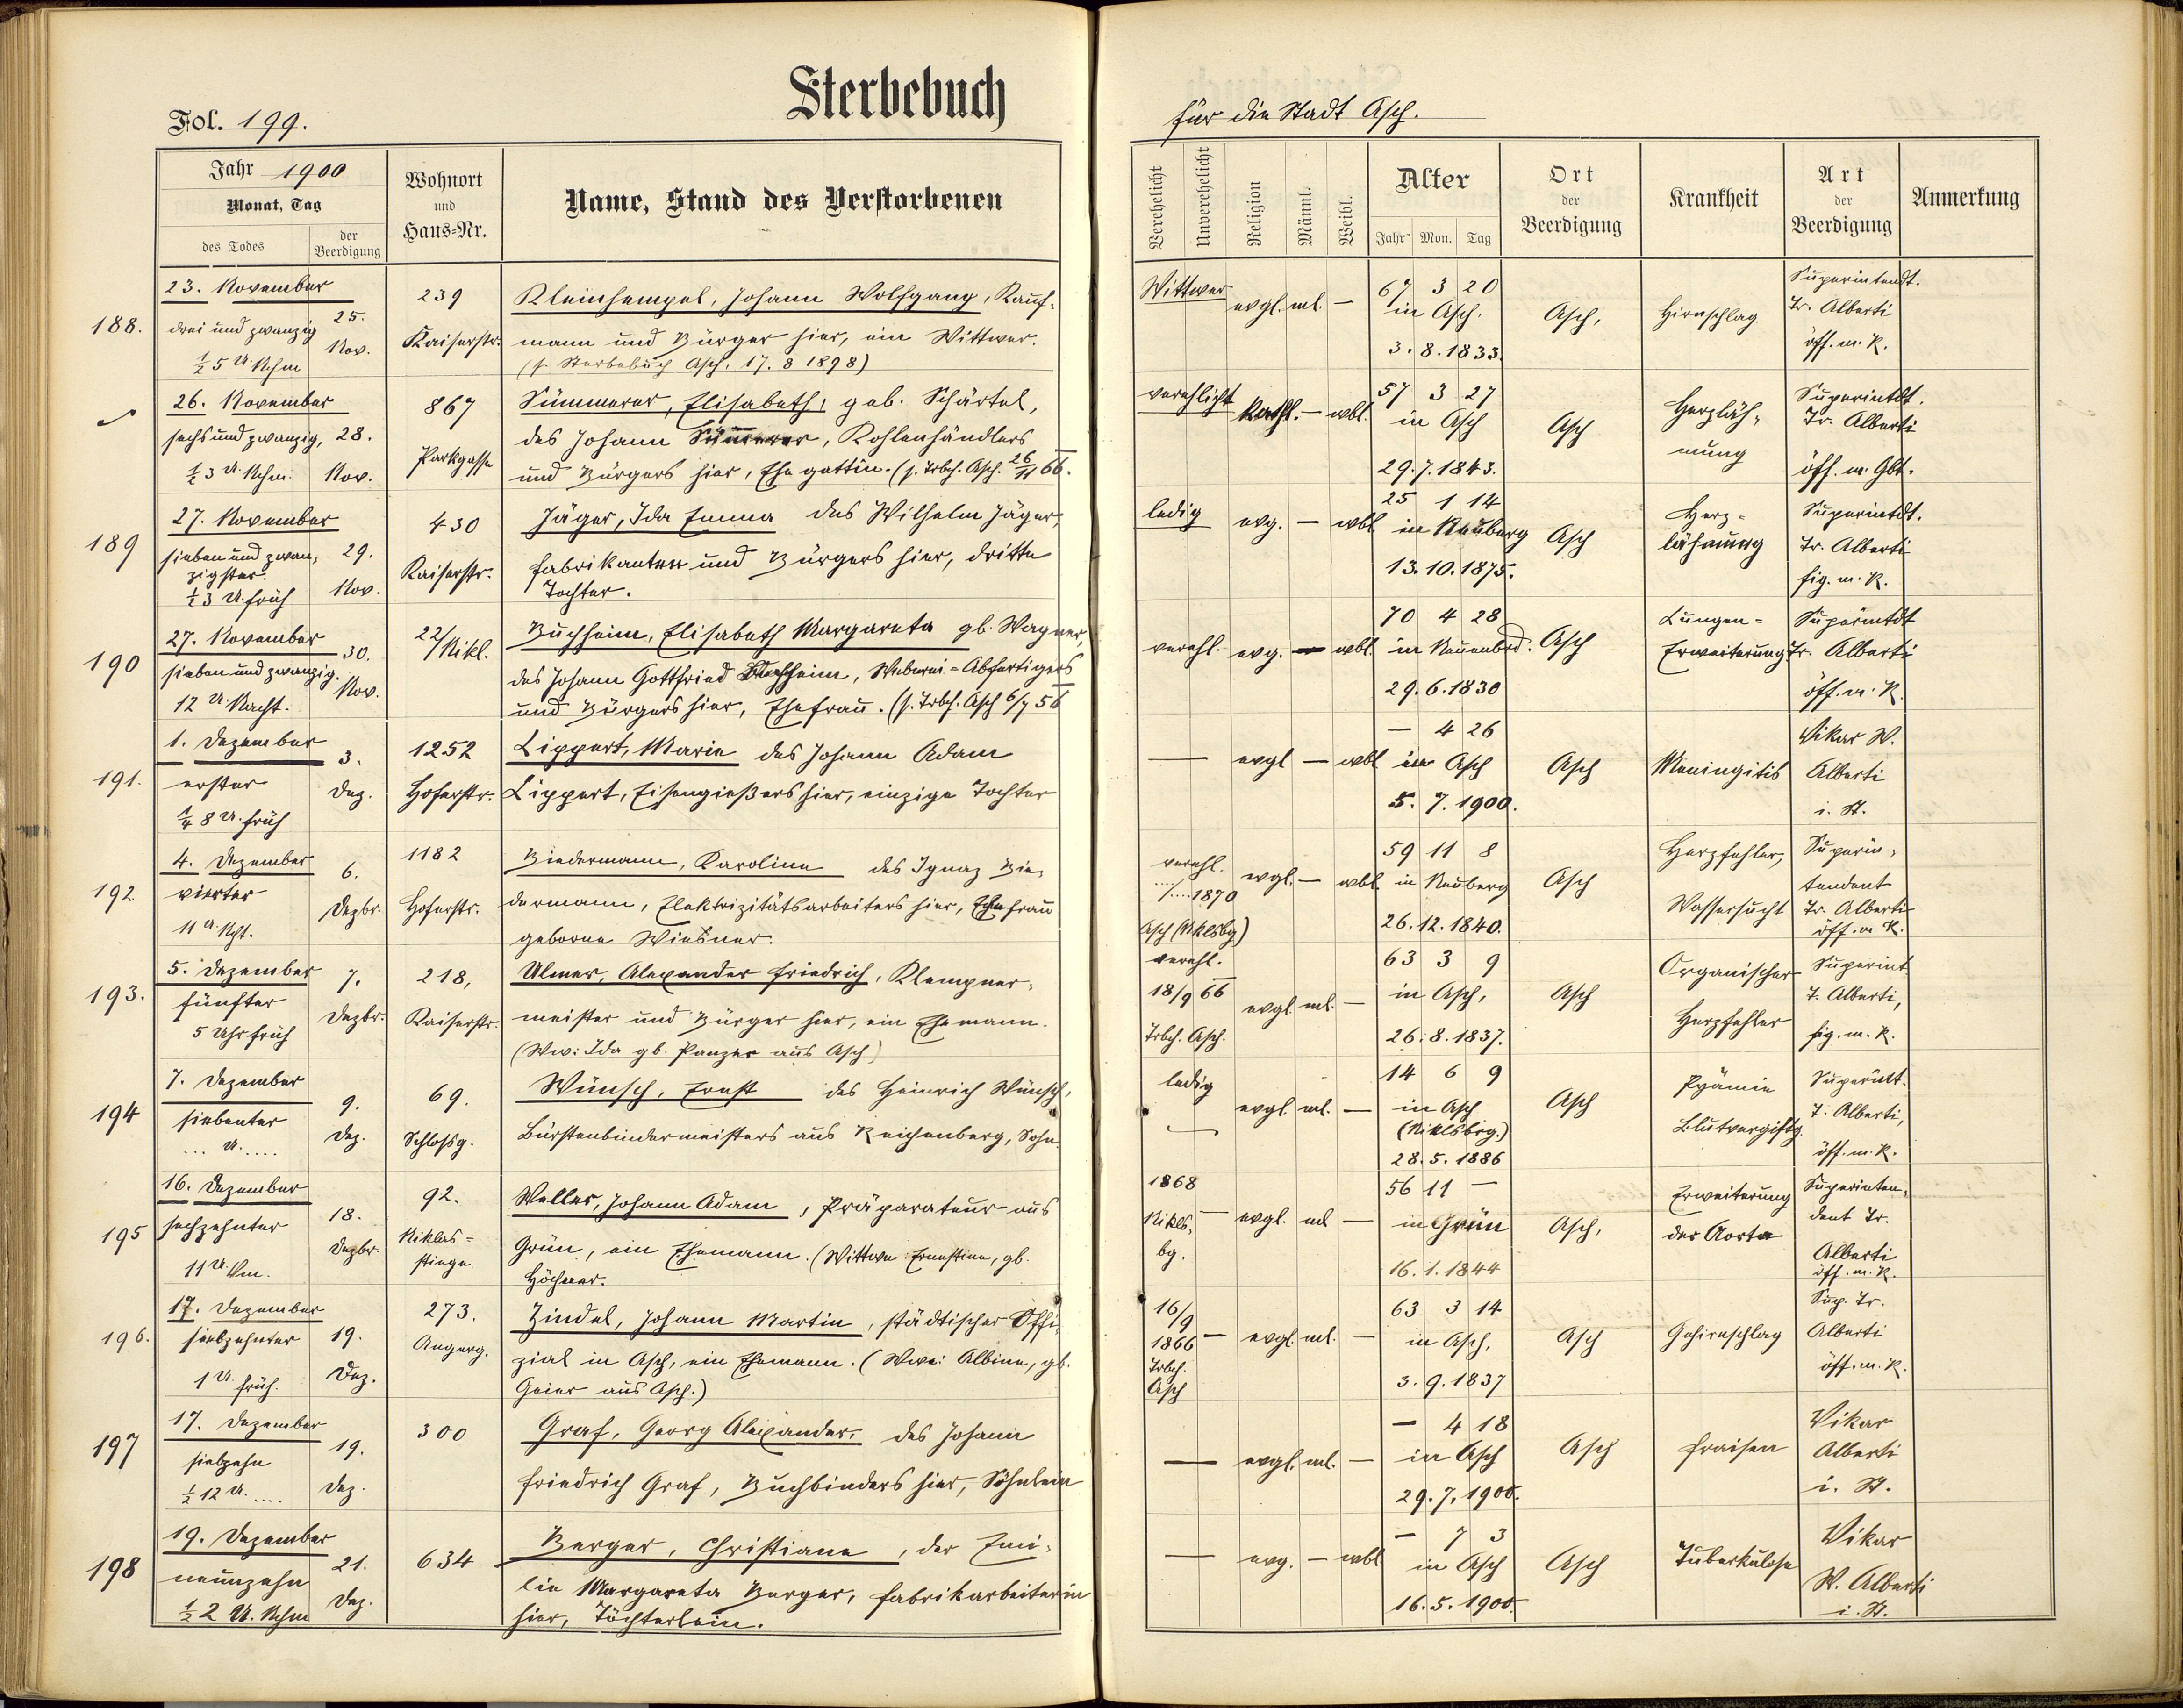 Sterbebuch
Fol. 199.
für die Stadt Asch.
Jahr 1900
Monat, Tag
des Todes
der Beerdigung
Wohnort
und
Haus=Nr.
Name, Stand des Verstorbenen
Verehelicht
Unverehelicht
Religion
Männl.
Weibl.
Alter
Jahr Mon. Tag
Ort
der
Beerdigung
Krankheit
Art
der
Beerdigung
Anmerkung
188.
23. November
drei und zwanzig
½ 5 U. Nchm
25.
Nov.
239
Kaiserstr.
Kleinhempel, Johann Wolfgang, Kauf-
mann und Bürger hier, ein Wittwer.
(s. Sterbebuch Asch. 17. 8 1898)
Wittwer
evgl. ml. —
67 3 20
in Asch.
3. 8. 1833.
Asch,
Hirnschlag.
Superintendt.
Tr. Alberti
öff. m. K.
26. November
sechs und zwanzig,
½ 3 U. Nchm.
28.
Nov.
867
Parkgasse
Sümmerer, Elisabeth, geb. Schärtel,
des Johann Sümmerer, Kohlenhändlers
und Bürgers hier, Ehegattin. (s. Trbch. Asch. 26/11 66.
verehlicht
Kathl. — wbl.
57 3 27
in Asch
29. 7. 1843.
Asch
Herzläh-
mung
Superintdt.
Tr. Alberti
öff. m. Gbt.
189
27. November
sieben und zwan-
zigster.
½ 3 U. früh
29.
Nov.
430
Kaiserstr.
Jäger, Ida Emma des Wilhelm Jäger,
Fabrikanten und Bürgers hier, dritte
Tochter.
ledig
evg. — wbl
25 1 14
in Neuberg
13. 10. 1875.
Asch
Herz-
lähmung
Superintdt.
Tr. Alberti
fig. m. K.
190
27. November
sieben und zwanzig.
12 U. Nacht.
30.
Nov.
22/Nikl.
Buchheim, Elisabeth Margareta gb. Wagner,
des Johann Gottfried Buchheim, Weberei=Abfertigers
und Bürgers hier, Ehefrau. (s. Trbch. Asch 6/7 56
verehl. evg. — wbl.
70 4 28
in Neuenbrd.
29. 6. 1830
Asch
Lungen=
Erweiterung
Superintdt
Tr. Alberti
öff. m. K.
191.
1. Dezember
erster
¼ 8 U. früh
3.
Dez.
1252
Hoferstr.
Lippert, Marie des Johann Adam
Lippert, Eisengießers hier, einzige Tochter
— evgl — wbl
— 4 26
in Asch
5. 7. 1900.
Asch
Meningitis
Vikar W.
Alberti
i. St.
192.
4. Dezember
vierter
11 U. Nht.
6.
Dezbr.
1182
Hoferstr.
Biedermann, Karoline des Ignaz Bie-
dermann, Elektrizitätsarbeiters hier, Ehefrau
geborne Wiesner.
verehl.
..../.... 1870
Asch (Nklsbg)
evgl. — wbl
59 11 8
in Neuberg
26. 12. 1840.
Asch
Herzfehler,
Wassersucht
Superin-
tendent
Tr. Alberti
öff. m K.
193.
5. Dezember
fünfter
5 Uhr früh
7.
Dezbr.
218,
Kaiserstr.
Ulmer, Alexander Friedrich, Klempner-
meister und Bürger hier, ein Ehemann.
(Ww: Ida gb. Panzer aus Asch)
verehl.
18/9 66
Trbch. Asch.
evgl. ml. —
63 3 9
in Asch,
26. 8. 1837.
Asch
Organischer
Herzfehler
Superint
T. Alberti,
fig. m. K.
194
7. Dezember
siebenter
... U. ....
9.
Dez.
69.
Schloßg.
Wünsch, Ernst des Heinrich Wünsch,
Bürstenbindermeisters aus Reichenberg, Sohn
ledig
evgl. ml. —
14 6 9
in Asch
(Niklsbrg.)
28. 5. 1886
Asch
Pyämie
Blutvergiftg.
Superintt.
T. Alberti,
öff. m. K.
195
16. Dezember
sechzehnter
11 U. Vm.
18.
Dezbr.
92.
Niklas=
stiege
Weller, Johann Adam, Präparateur aus
Grün, ein Ehemann. (Wittwe: Ernestine, gb.
Höchner.
1868
Nikls-
bg.
— evgl. ml —
56 11 —
in Grün
16. 1. 1844
Asch,
Erweiterung
der Aorta
Superinten-
dent Tr.
Alberti
öff. m. K.
196.
17. Dezember
siebzehnter
1 U. früh.
19.
Dez.
273.
Angerg.
Zindel, Johann Martin, städtischer Offi-
zial in Asch, ein Ehemann. (Wwe: Albine, gb.
Geier aus Asch.)
16/9
1866
Trbch.
Asch
— evgl. ml. —
63 3 14
in Asch,
3. 9. 1837
Asch
Gehirnschlag
Sup. Tr.
Alberti
öff. m. K.
197
17. Dezember
siebzehn
½ 12 U. ....
19.
Dez.
300
Graf, Georg Alexander, des Johann
Friedrich Graf, Buchbinders hier, Söhnlein
— evgl. ml. —
— 4 18
in Asch
29. 7. 1900.
Asch
Fraisen
Vikar
Alberti
i. St.
198
19. Dezember
neunzehn
½ 2 U. Nchm
21.
Dez.
634
Berger, Christiane, der Emi-
lie Margareta Berger, Fabrikarbeiterin
hier, Töchterlein.
— evg. — wbl
— 7 3
in Asch
16. 5. 1900.
Asch
Tuberkulose
Vikar
W. Alberti
i. St.